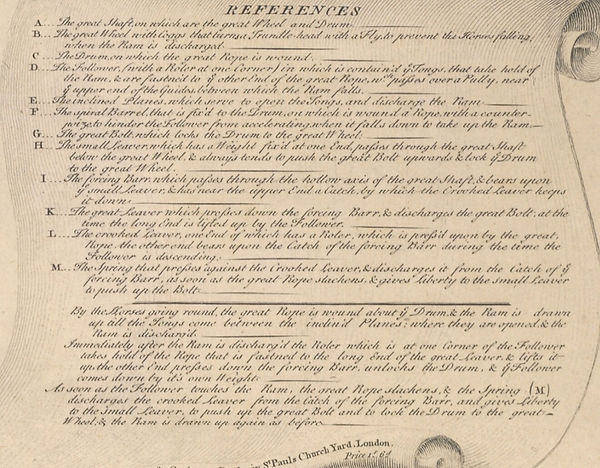 REFERENCES
A... The great Shaft, on which are the great Wheel and Drum.
B... The great Wheel with Coggs that turns a Trundle-head with a Fly, to prevent the Horses falling,
when the Ram is discharged
C... The Drum, on which the great Rope is wound.
D... The Follower, (with a Roler at one Corner) in which is contain'd ye Tongs, that take hold of
the Ram, & are fastned to ye other End of the great Rope, wch passes over a Pully, near
ye upper end of the Guides, between which the Ram falls.
E... The inclined Planes, which serve to open the Tongs, and discharge the Ram
F... The spiral Barrel, that is fix'd to the Drum, on which is wound a Rope, with a counter-
to hinder the Follower from accelerating, when it falls down to take up the Ram
G... The great Bolt, which locks the Drum to the great Wheel
H... The small Leaver, which has a Weight fix'd at one End, passes through the great Shaft
below the great Wheel, & always tends to push the great Bolt upwards & lock ye Drum
to the great Wheel.
I... The forcing Barr, which passes through the hollow axis of the great Shaft, & bears upon
ye small Leaver, & has near the upper End a Catch, by which the Crooked Leaver keeps
it down
K... The great Leaver which presses down the forcing Barr, & discharges the great Bolt, at the
time the long End is lifted up by the Follower.
L... The crooked Leaver, one End of which has a Roler, which is press'd upon by the great
Rope, the other end bears upon the Catch of the forcing Barr during the time the
Follower is descending.
M... The Spring that presses against the Crooked Leaver, & discharges it from the Catch of ye
forcing Barr, as soon as the great Rope slackens, & gives Liberty to the small Leaver
to push up the Bolt
By the Horses going round, the great Rope is wound about ye Drum, & the Ram is drawn
up till the Tongs come between the inclin'd Planes; where they are opened, & the
Ram is discharg'd
Immediately after the Ram is discharg'd the Roler which is at one Corner of the Follower
takes hold of the Rope that is fastned to the long End of the great Leaver, & lifts it
up, the other End presses down the forcing Barr, unlocks the Drum, & ye Follower
comes down by its own Weight
As soon as the Follower touches the Ram, the great Rope slackens, & the Spring (M)
discharges the crooked Leaver from the Catch of the forcing Barr, and gives Liberty
to the small Leaver, to push up the great Bolt and to lock the Drum to the great
Wheel, & the Ram is drawn up again as before.
St. Pauls Church Yard, London.
Price 1s. 6d